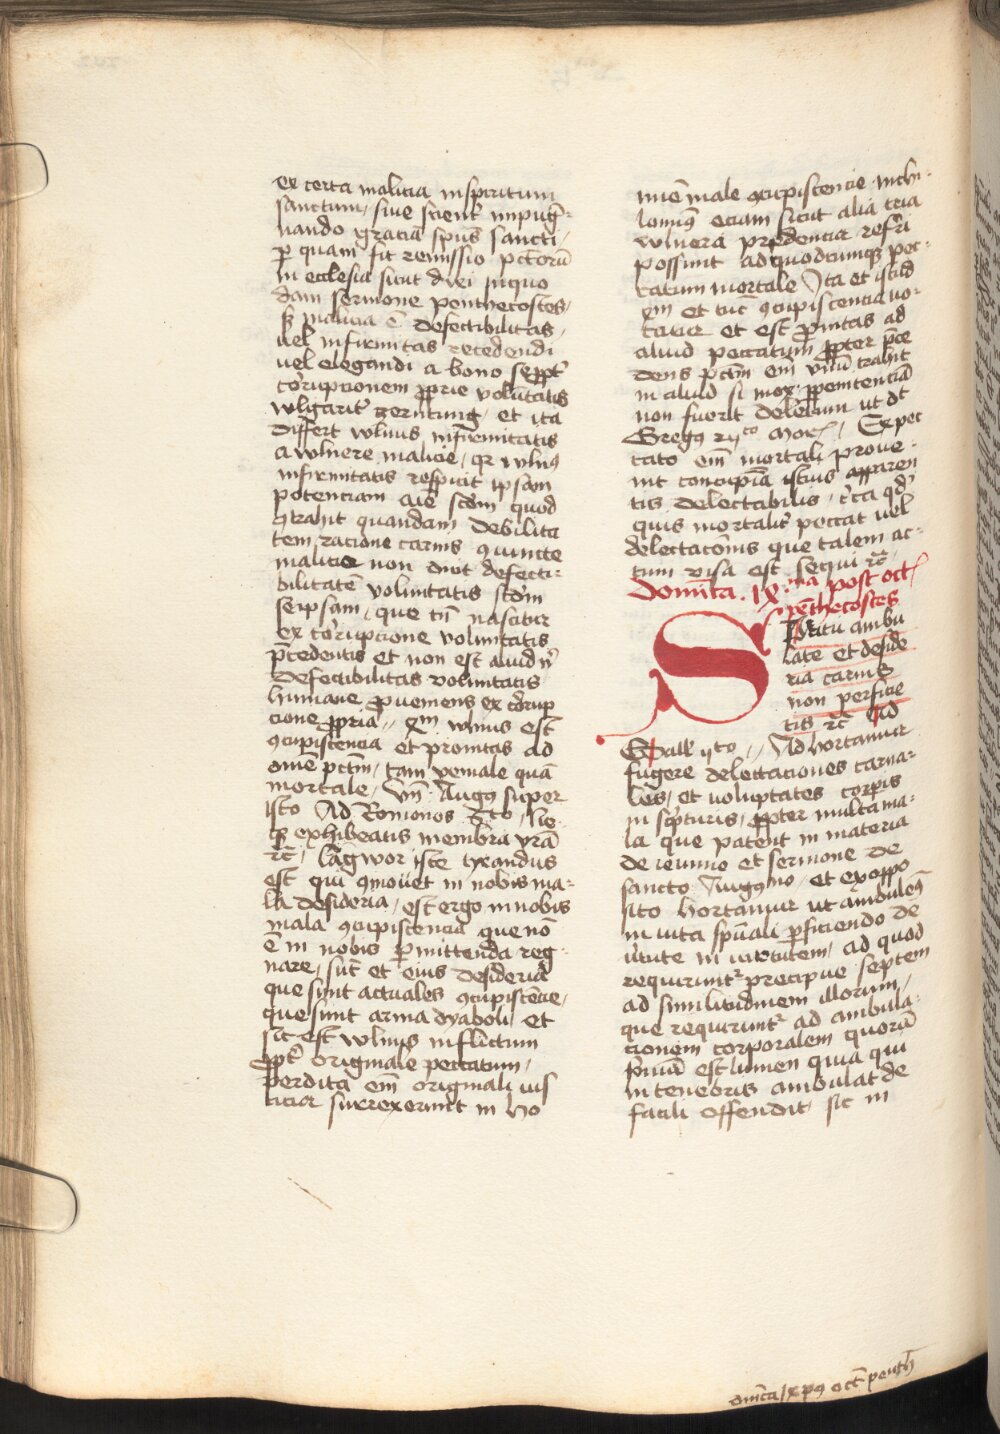 ex certa malicia inspiritum
sanctum, siue scient̄ impug-
nando graciā spūs sancti,
ꝑ quam fit remissio pctōrū
in ecclesia sicut dixi inquo
dam sermone penthecostes,
malicia ē defectibilitas,
uel infirmitas recedendi
uel elegandi a bono seppt̄
corrupcionem ꝓprie volūtatis
wlgarit̄ et ita
differt wlnus infirmitatis
a wlnere malicie, qꝛ wlnꝰ
infirmitatis respicit ipsam
potenciam aīe scdm̄ quod
ꝯtrahit quandam debilita
tem racione carnis ꝯiuncte
malicia non dicit defecti-
bilitatē voluntatis scdm̄
seipsam, que tn̄ nascitur
ex corrupcione voluntatis
p̄cedentis et non est aliud nˡ
defectibilitas voluntatis
humane ꝓueniens ex corrup
cione ꝓpria, wlnus est
ꝯcupiscencia et pronitas ad
omē pctm̄, tam veniale quā
mortale, Vn̄ Augꝰ super
isto Ad Romanos
exhibeatis membra vr̄a
rc̄, langwor iste tyrandus
est qui ꝯmouet in nobis ma-
la desideria, est ergo innobis
mala ꝯcupiscencia que nō
ē in nobis ꝑmittenda reg-
nare, sūt et eius desideria
que sunt actuales ꝯcupiscēcie,
que sunt arma dyaboli, et
sic est wlnus inflictum
ꝓpt̄ originale peccatum,
perdita em̄ originali iusˡ
ticia surrexerunt in ho
mīe male ꝯcupiscencie. nichi-
lominꝰ eciam sicut alia tria
wlnera precedencia referri
possunt ad quodcumqꝫ pec-
catum mortale Ita et istud
et tūc ꝯcupiscencia uo-
catur et est pronitas ad
aliud peccatum ꝓpter p̄ce
dens pctm̄ em̄ vnū trahit
in aliud si mox ꝑ penitenciā
non fuerit deletum ut dt̄
Gregꝰ Morˡ, Ex pec
cato em̄ mortali proue-
nit concupīa istius apparen
tis delectabilis, circa qd̄
quis mortalit̄ peccat uel
delectacōnis que talem ac-
tum visa est sequi rc̄
Domīca. IX.ma post octˡ
pēthecostes
Spiritu ambu
late et deside
ria carnis
non perficie
tis rc̄ Ad
Gall vto, Adhortamur
fugere delectaciones carna-
les, et uoluptates corpīs
in scripturis, ꝓpter multa ma-
la que patent in materia
de ieiunio et sermone de
sancto Augꝰno, et ex oppo
sito hortamur ut ambulemꝰ
in vita spūali ꝑficiendo de
uirtute in uirtutem, ad quod
requiruntꝛ precipue septem
ad similitudinem illorum,
que requiruntꝛ ad ambula-
cionem corporalem quorū
primū est lumen quia qui
in tenebris ambulat de
facili offendit, sic in
omīca ix pꝰ oct̄ penth̄